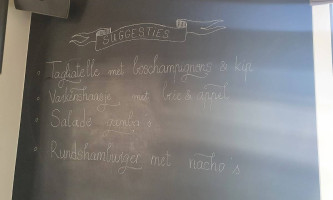 SUGGESTIES
Tagliatelle met boschampignons & kip
Varkenshaasje met brie & appel
Salade gamba's
Rundshamburger met nacho's